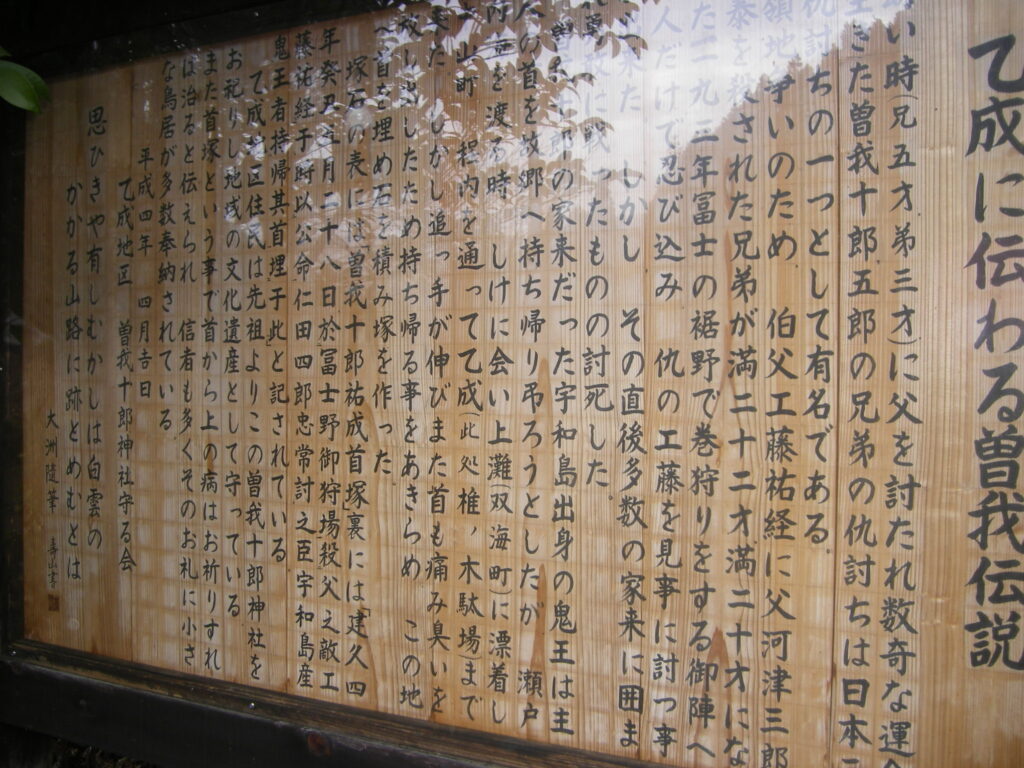 乙成に伝わる曽我伝説
い時(兄五才弟三才)に父を討たれ数奇な運
きた曽我十郎、五郎の兄弟の仇討ちは日本三
ちの一つとして有名である。
争いのため 伯父工藤祐経に父河津三郎
された兄弟が満二十二才満二十才にな
た一一九三年冨士の裾野で巻狩りをする御陣へ
人だけで忍び込み 仇の工藤を見事に討つ事
た しかし その直後多数の家来に囲ま
戦ったものの討死した。
郎の家来だった宇和島出身の鬼王は主
の首を故郷へ持ち帰り弔ろうとしたが 瀬戸
内海を渡る時 しけに会い上灘(双海町)に漂着し
山町 程内を通って乙成(此処椎ノ木駄場)まで
来た しかし追っ手が伸びまた首も痛み臭いを
したため持ち帰る事をあきらめ この地
へ首を埋め石を積み塚を作った
塚石の表には「曽我十郎祐成首塚」裏には「建久四
年癸丑五月二十八日於冨士野御狩場殺父之敵工
藤祐経于時以公命仁田四郎忠常討之臣宇和島産
鬼王者持帰其首埋于此」と記されている
乙成地区住民は先祖よりこの曽我十郎神社を
お祀りし地域の文化遺産として守っている
また首塚という事で首から上の病はお祈りすれ
ば治ると伝えられ 信者も多くそのお札に小さ
な鳥居が多数奉納されている
平成四年 四月吉日
乙成地区 曽我十郎神社守る会
思ひきや有しむかしは白雲の
かかる山路に跡とめむとは
大洲随筆